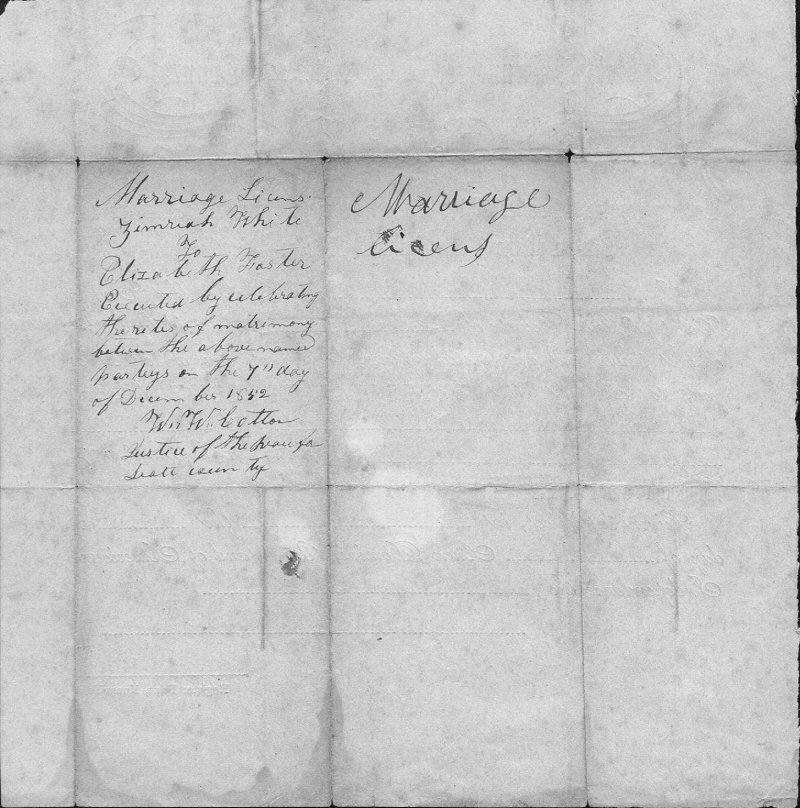 Marriage Licens.
Zimriah White
To
Elizabeth Foster
Executed by celebrating
the rites of matrimony
betwen the above named
parteys on the 7" day
of Decem ber 1852
Wm W. Cotton
Justice of the peace for
Scott coun ty
Marriage
licens